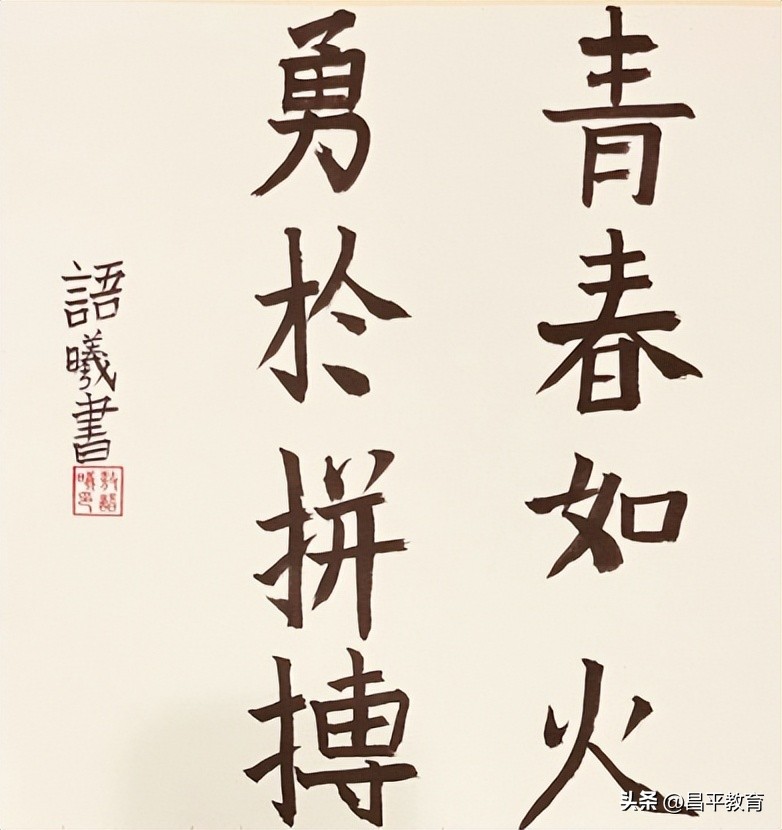 青春如火
勇於拼搏
語曦書
語
曦印
头条 @昌平教育